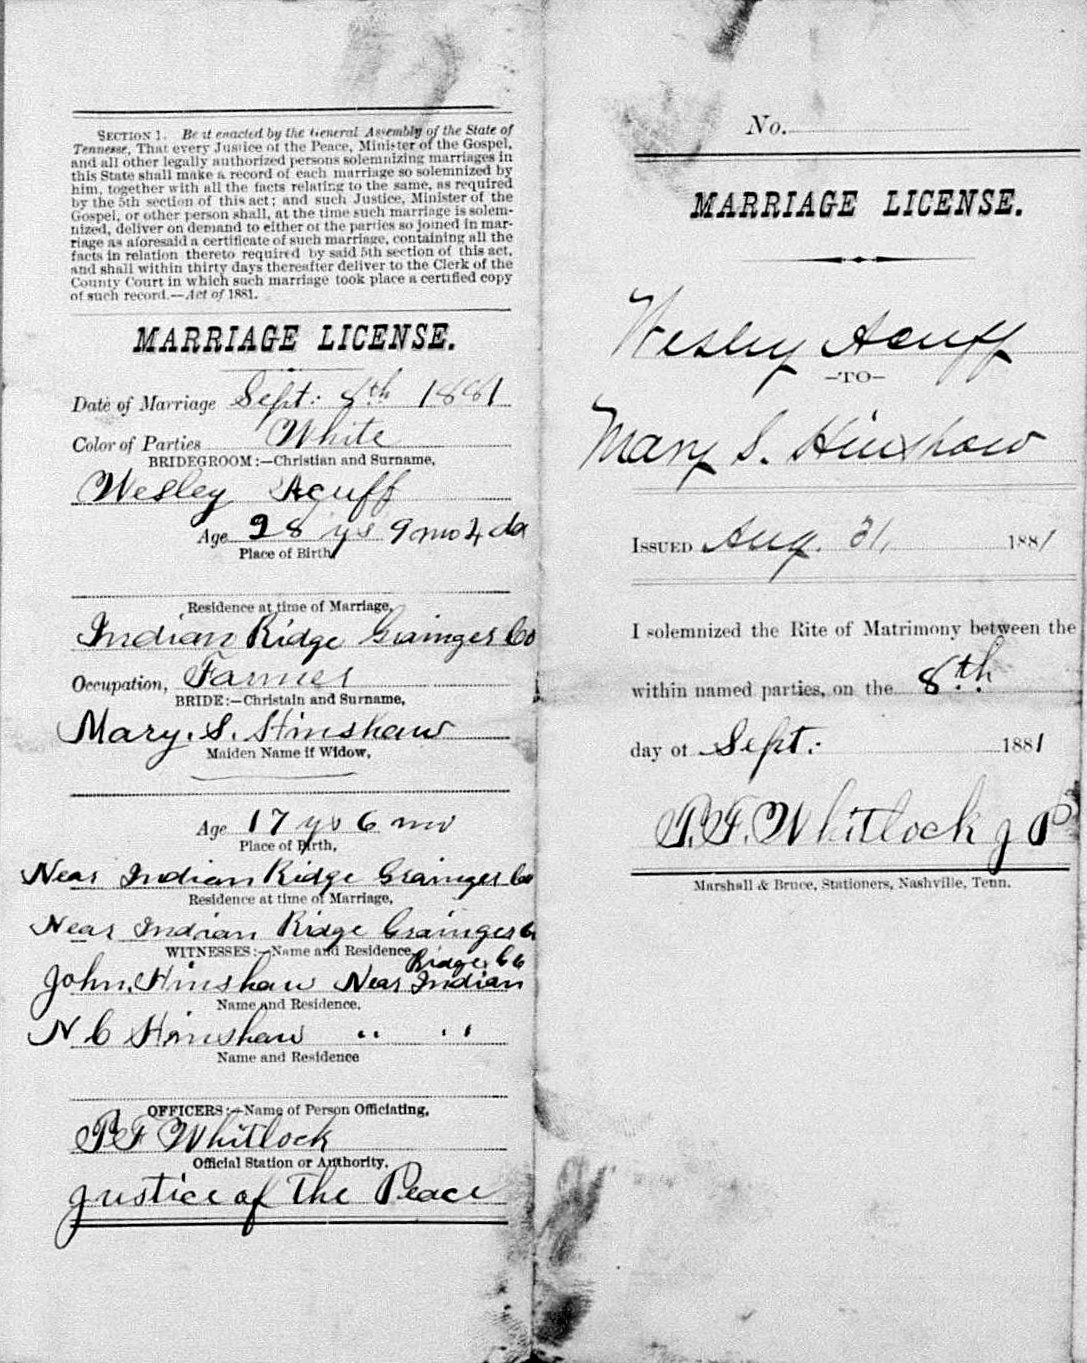 SECTION 1. Be it enacted by the General Assembly of the State of
Tennesse, That every Justice of the Peace, Minister of the Gospel,
and all other legally authorized persons solemnizing marriages in
this State shall make a record of each marriage so solemnized by
him, together with all the facts relating to the same, as required
by the 5th section of this act; and such Justice, Minister of the
Gospel, or other person shall, at the time such marriage is solem-
nized, deliver on demand to either of the parties so joined in mar-
riage as aforesaid a certificate of such marriage, containing all the
facts in relation thereto required by said 5th section of this act,
and shall within thirty days thereafter deliver to the Clerk of the
County Court in which such marriage took place a certified copy
of such record.—Act of 1881.
MARRIAGE LICENSE.
Date of Marriage Sept: 8th 1881
Color of Parties White
BRIDEGROOM:—Christian and Surname,
Wesley Acuff
Age 28 ys 9 mo 4 da
Place of Birth
Residence at time of Marriage,
Indian Ridge Grainger Co
Occupation, Farmer
BRIDE:—Christain and Surname,
Mary. S. Hinshaw
Maiden Name if Widow,
Age 17 ys 6 mo
Place of Birth,
Near Indian Ridge Grainger Co
Residence at time of Marriage,
Near Indian Ridge Grainger Co
WITNESSES:—Name and Residence,
Ridge Co
John. Hinshaw Near Indian
Name and Residence.
N C Hinshaw " "
Name and Residence
OFFICERS:—Name of Person Officiating,
P F Whitlock
Official Station or Authority,
Justice of The Peace
No.
MARRIAGE LICENSE.
Wesley Acuff
—TO—
Mary S. Hinshaw
ISSUED Aug. 31, 1881
I solemnized the Rite of Matrimony between the
within named parties, on the 8th
day of Sept: 1881
P. F. Whitlock J P
Marshall & Bruce, Stationers, Nashville, Tenn.